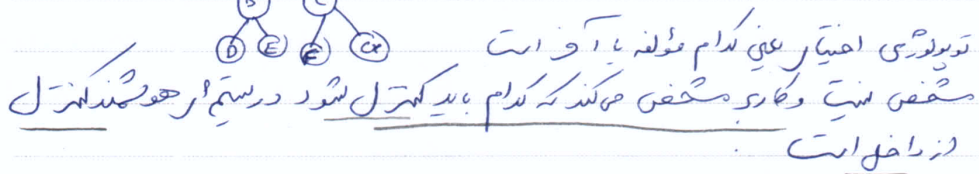 B C
D E F G
توپولوژی اختیار یعنی کدام مؤلفه با آ و است
مشخص نیست و کاربر مشخص می‌کند که کدام باید کنترل شود در سیستم‌های هوشمند کنترل
از داخل است